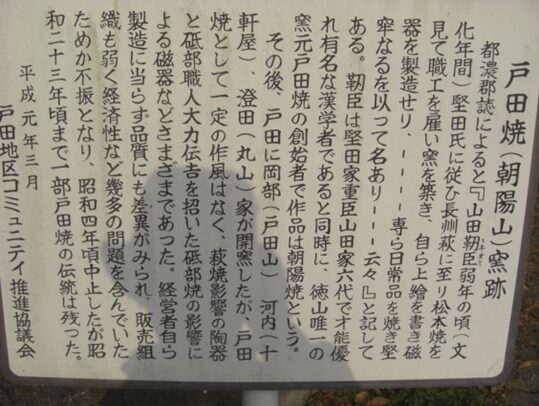 戸田焼(朝陽山)窯跡
都濃郡誌によると『山田靭臣弱年の頃(文
化年間)堅田氏に従ひ長州萩に至り松本焼を
見て職工を雇い窯を築き、自ら上繪を書き磁
器を製造せり、----専ら日常品を焼き堅
牢なるを以って名あり---云々』と記して
ある。靭臣は堅田家重臣山田家六代で才能優
れ有名な漢学者であると同時に、徳山唯一の
窯元戸田焼の創始者で作品は朝陽焼という。
その後、戸田に岡部(戸田山)河内(十
軒屋)、澄田(丸山)家が開窯したが、戸田
焼として一定の作風はなく、萩焼影響の陶器
と砥部職人大力伝吉を招いた砥部焼の影響に
よる磁器などさまざまであった。経営者自ら
製造に当らず品質にも差異がみられ、販売組
織も弱く経済性など幾多の問題を含んでいた
ためか不振となり、昭和四年頃中止したが昭
和二十三年頃まで一部戸田焼の伝統は残った。
平成元年三月
戸田地区コミュニテイ推進協議会